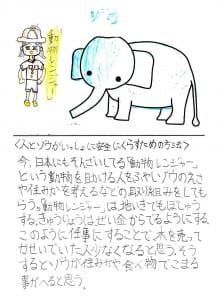 ゾウ
動物レンジャー
<人とゾウがいっしょに安全にくらすための方法>
今、日本にもそんざいしてる「動物レンジャー」
という動物を助ける人をふやしゾウのえ
さや住みかを考えるなどの取り組みをしても
らう。動物レンジャーは、地いきでもぼしゅう
する。きゅうりょうはぜい金からでるようにする。
このように仕事にすることで、木を売って
かせいでいた人が少なくなると思う。そう
するとゾウが住みかや食べ物でこまる
事がへると思う。